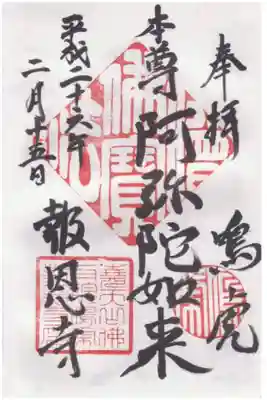 奉拝 鳴虎
本尊阿弥陀如来
平成二十六年
二月十五日
報恩寺